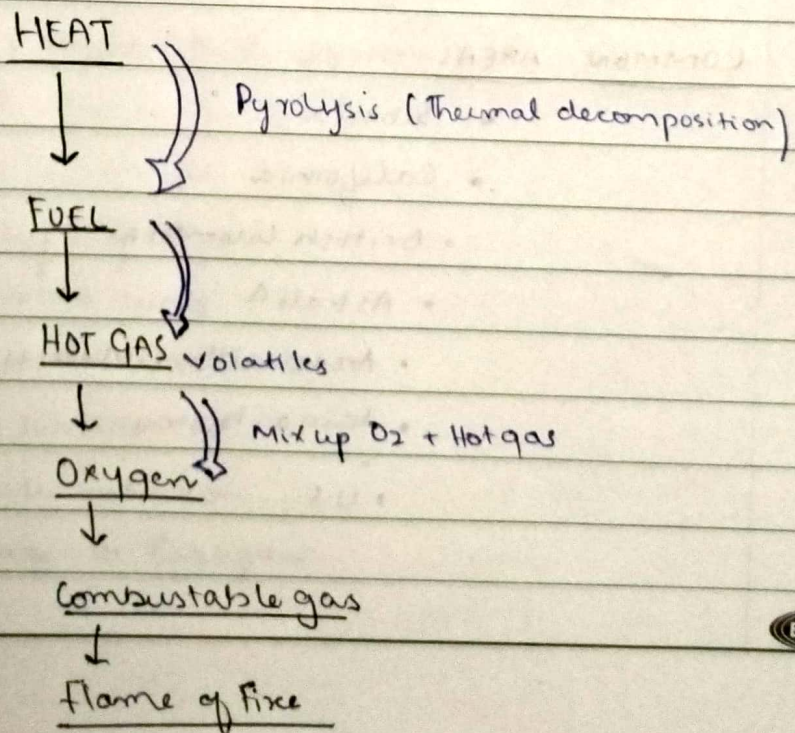 HEAT
Pyrolysis (Thermal decomposition)
FUEL
HOT GAS Volatiles
Mix up O2 + Hot gas
Oxygen
Combustable gas
flame of Fire